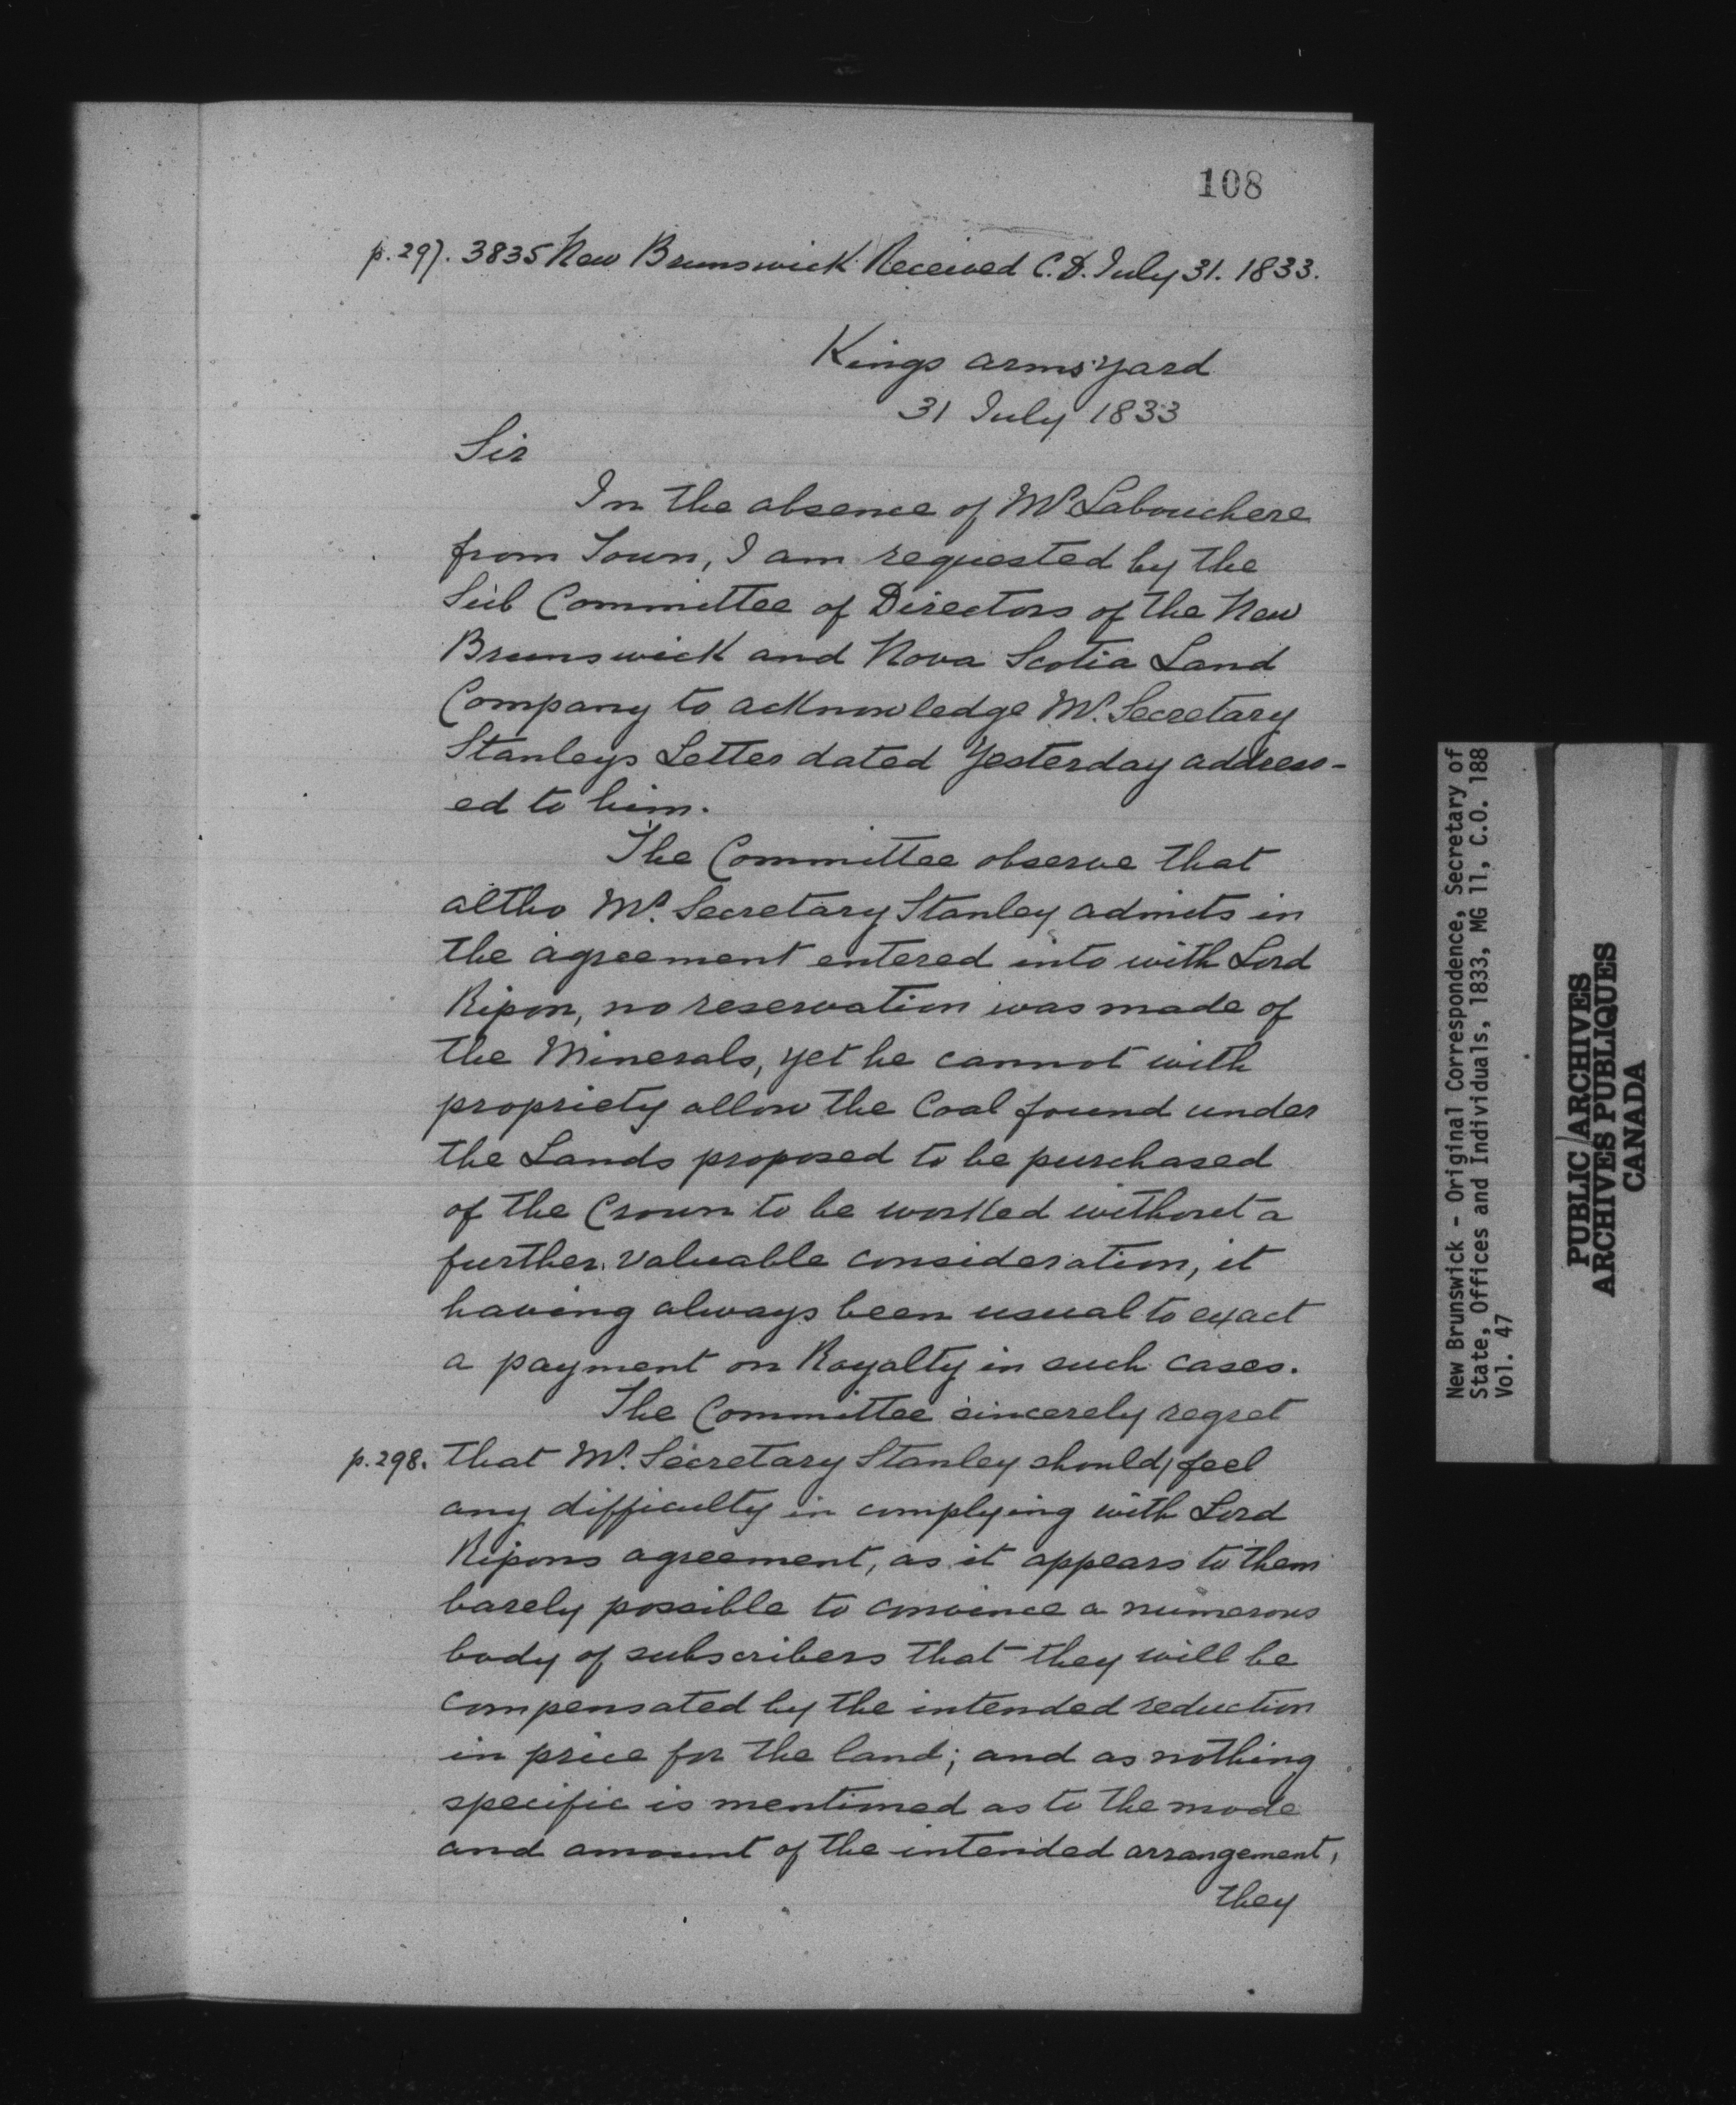 108
p. 297. 3835 New Brunswick Received C.D. July 31. 1833.
Kings arms Yard
31 July 1833
Sir
In the absence of Mr. Labouchere
from Town, I am requested by the
Sub Committee of Directors of the New
Brunswick and Nova Scotia Land
Company to acknowledge Mr. Secretary
Stanleys Letter dated Yesterday address-
ed to him.
The Committee observe that
altho Mr. Secretary Stanley admits in
the agreement entered into with Lord
Ripon, no reservation was made of
the Minerals, yet he cannot with
propriety allow the Coal found under
the Lands proposed to be purchased
of the Crown to be worked without a
further valuable consideration, it
having always been usual to exact
a payment on Royalty in such cases.
The Committee sincerely regret
p. 298. that Mr. Secretary Stanley should feel
any difficulty in complying with Lord
Ripons agreement, as it appears to them
barely possible to convince a numerous
body of subscribers that they will be
compensated by the intended reduction
in price for the land; and as nothing
specific is mentioned as to the mode
and amount of the intended arrangement,
they
New Brunswick - Original Correspondence, Secretary of
State, Offices and Individuals, 1833, MG 11, C.O. 188
Vol. 47
PUBLIC ARCHIVES
ARCHIVES PUBLIQUES
CANADA